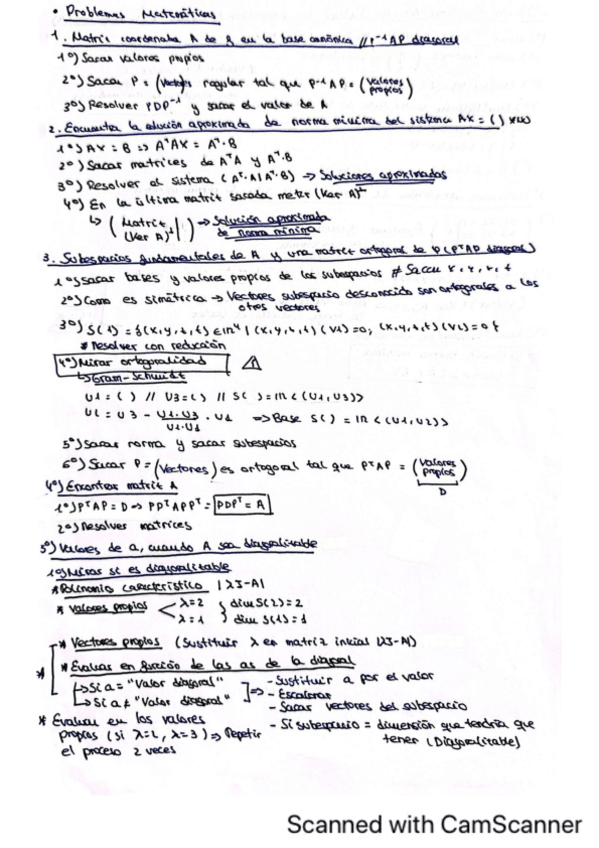 • Problemas Matemáticas
1. Matriz coordenada A de g en la base canónica // P⁻¹AP diagonal
1º) Sacar valores propios
2º) Sacar P = (Vectores) regular tal que P⁻¹AP = (valores propios)
3º) Resolver PDP⁻¹ y sacar el valor de A
2. Encuentra la solución aproximada de norma mínima del sistema AX = ( )
1º) AX = B => AᵀAX = Aᵀ·B
2º) Sacar matrices de AᵀA y Aᵀ·B
3º) Resolver el sistema (Aᵀ·A|Aᵀ·B) → Soluciones aproximadas
4º) En la última matriz sacada meter (Ker A)⊥
↳ (Matriz (Ker A)⊥ | ) → Solución aproximada de norma mínima
3. Subespacios fundamentales de A y una matriz ortogonal de P (PᵀAP diagonal)
1º) Sacar bases y valores propios de los subespacios # Sacar x, y, z, t
2º) Como es simétrica → Vectores subespacio desconocido son ortogonales a los
otros vectores
3º) S(1) = {(x,y,z,t) ∈ IR⁴ | (x,y,z,t)(V1)=0, (x,y,z,t)(V2)=0}
* Resolver con reducción
4º) Mirar ortogonalidad ⚠
↳ Gram-Schmidt
U1 = ( ) // U3 = ( ) // S( ) = IR<(U1,U3)>
U2 = U3 - U1·U3 / U1·U1 · U1 => Base S( ) = IR<(U1,U2)>
5º) Sacar norma y sacar subespacios
6º) Sacar P = (Vectores) es ortogonal tal que PᵀAP = (valores propios)
D
4º) Encontrar matriz A
1º) PᵀAP = D → PPᵀAPPᵀ = PDPᵀ = A
2º) Resolver matrices
5º) Valores de a, cuando A sea diagonalizable
1º) Mirar si es diagonalizable
* Polinomio característico |λI-A|
* Valores propios < λ=2 } dim S(2)=2
λ=1 } dim S(1)=1
* Vectores propios (Sustituir λ en matriz inicial |λI-A|)
* Evaluar en función de las as de la diagonal
↳ Si a = "Valor diagonal"
↳ Si a ≠ "Valor diagonal"
=> - Sustituir a por el valor
- Escalonar
- Sacar vectores del subespacio
- Si subespacio = dimensión que tendría que
tener (Diagonalizable)
* Evaluar en los valores
propios (si λ=2, λ=3) => Repetir
el proceso 2 veces
Scanned with CamScanner